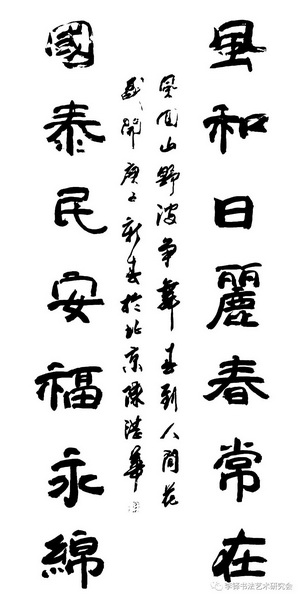 風和日麗春常在
風回山野波争舞春到人間花
盛開庚子新春於北京陳華
國泰民安福永綿
李铎书法艺术研究会